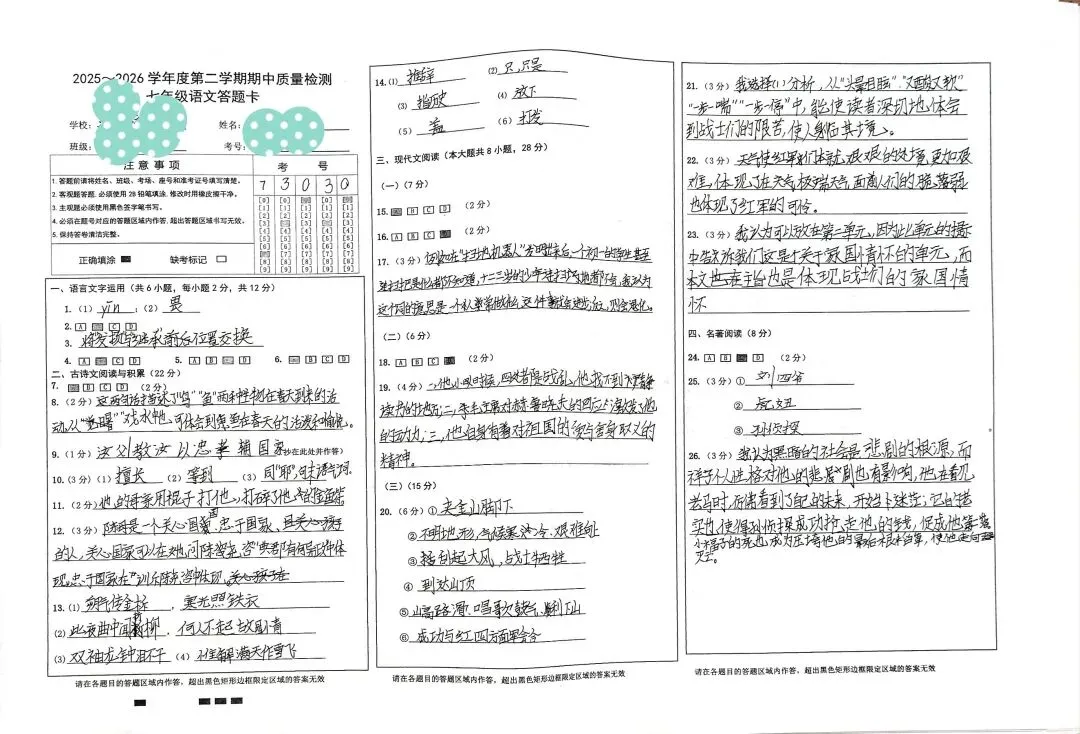 2025～2026学年度第二学期期中质量检测
七年级语文答题卡
学校：
姓名：
班级：
考号：
注意事项
1. 答题前请将姓名、班级、考场、座号和准考证号填写清楚。
2. 客观题答题, 必须使用2B铅笔填涂, 修改时用橡皮擦干净。
3. 主观题必须使用黑色签字笔书写。
4. 必须在题号对应的答题区域内作答, 超出答题区域书写无效。
5. 保持答卷清洁完整。
正确填涂
缺考标记
考号
7 3 0 3 0
[0] [0] [0] [0] [0]
[1] [1] [1] [1] [1]
[2] [2] [2] [2] [2]
[3] [3] [3] [3] [3]
[4] [4] [4] [4] [4]
[5] [5] [5] [5] [5]
[6] [6] [6] [6] [6]
[7] [7] [7] [7] [7]
[8] [8] [8] [8] [8]
[9] [9] [9] [9] [9]
一、语言文字运用（共6小题，每小题2分，共12分）
1.（1） yīn ；（2） 畏
2. A B C D
3. 将发扬与继承前后位置交换
4. A B C D 5. A B C D 6. A B C D
二、古诗文阅读与积累（22分）
7. B C D （2分）
8.（2分）这两句诗描述了"鸟""鱼"两种生物在春天到来的活
动，从 戏水 可体会到 在春天的活泼和愉悦。
9.（1分）汝父教汝以忠孝辅国家 抄在此处并作答）
10.（3分）（1） 擅长 （2） 等到 （3） 同"耶"，句末语气词。
11.（2分）他的母亲用棍子打他，打碎了他的金鱼袋
12.（3分） 是一个关心国家，忠于国家，且关心孩子
的人，关心国家可以在她问陈尧咨 中体
现，忠于国家在"训 中体现，关心孩子在
13.（1） 朔气传金柝 ， 寒光照铁衣
（2） 此夜曲中闻折柳 ， 何人不起故园情
（3） 双袖龙钟泪不干 （4） 惟解漫天作雪飞
请在各题目的答题区域内作答，超出黑色矩形边框限定区域的答案无效
14.（1） 推辞 （2） 只，只是
（3） （4） 放下
（5） 盖 （6） 打发
三、现代文阅读（本大题共8小题，28分）
（一）（7分）
15. B C D （2分）
16. A B C （2分）
17.（3分）例如在"扫地机器人"发明出来后一个初一的学生甚至
连扫把是什么都不知道，十二三岁的少年连扫地都不会，我认为
这个词的意思是一个人
（二）（6分）
18. A B C （2分）
19.（4分）一，他小的时候，四处都是战乱，他找不到
读书的地方；二，
的 力；三，他自身有着对祖国的爱与舍身取义的
精神。
（三）（15分）
20.（6分）① 夹金山脚下
② 不明地形，气候寒冷、艰难
③ 接刮起大风，战士牺牲
④ 到达山顶
⑤ 山高路滑、唱歌鼓气、顺利下山
⑥ 成功与红四方面军会合
请在各题目的答题区域内作答，超出黑色矩形边框限定区域的答案无效
21.（3分）我选择(1)分析，从"头晕目眩""又酸又软"
"一步一喘""一步一停"中，能使读者深切地体会
到战士们的艰苦，使人身临其境。
22.（3分）天气使红军们本就艰难的处境更加艰
难，体现了在天气极端天气面前人们的脆弱
也体现了红军的可怜。
23.（3分）我认为可以放在第二单元，因为此单元的提示
中告诉我们这是个关于家国情怀的单元，而
本文也在主旨也是体现战士们的家国情
怀
四、名著阅读（8分）
24. A B D （2分）
25.（3分）① 刘四爷
② 虎妞
③ 孙侦探
26.（3分）我认为黑暗的社会是悲剧的根源，而
祥子个人性格对他的悲剧也有影响，他在看见
老马时，仿佛看到了自己的未来，开始迷茫；它的老
实也使得孙侦探成功抢走他的钱，促成他
小福子的死也成为压垮他的最后一根稻草，使他走向
灭亡。
请在各题目的答题区域内作答，超出黑色矩形边框限定区域的答案无效